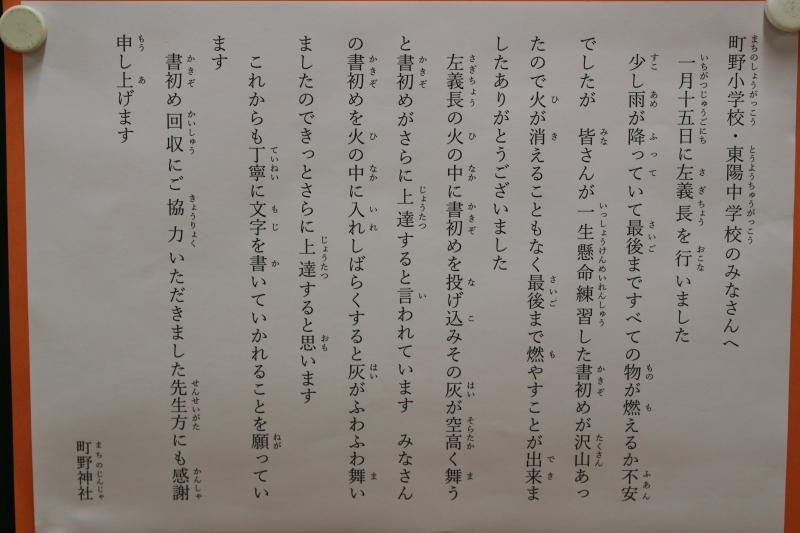 町野小学校・東陽中学校のみなさんへ
一月十五日に左義長を行いました
少し雨が降っていて最後まですべての物が燃えるか不安
でしたが 皆さんが一生懸命練習した書初めが沢山あっ
たので火が消えることもなく最後まで燃やすことが出来ま
したありがとうございました
左義長の火の中に書初めを投げ込みその灰が空高く舞う
と書初めがさらに上達すると言われています みなさん
の書初めを火の中に入れしばらくすると灰がふわふわ舞い
ましたのできっとさらに上達すると思います
これからも丁寧に文字を書いていかれることを願ってい
ます
書初め回収にご協力いただきました先生方にも感謝
申し上げます
町野神社